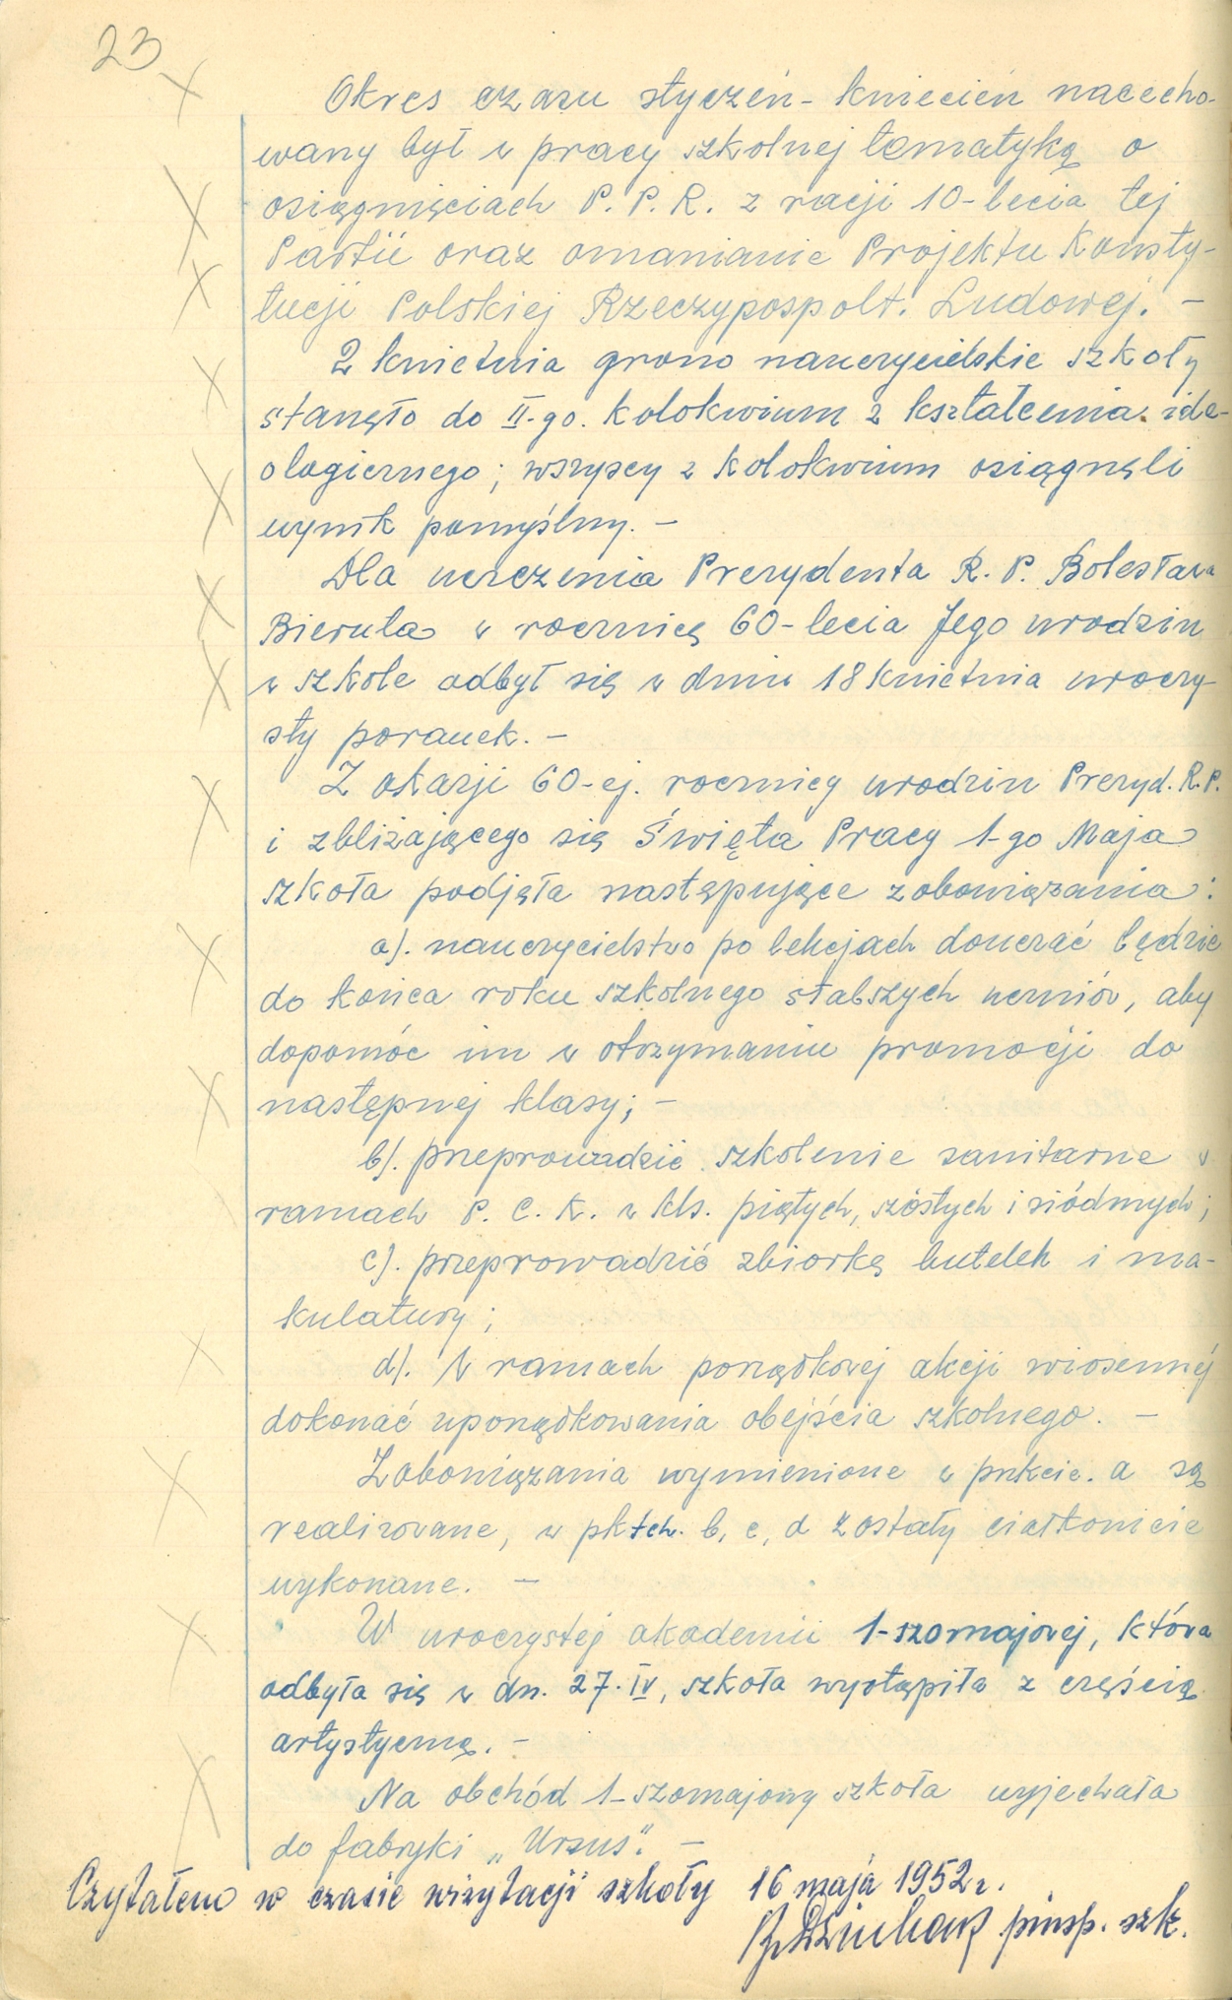 23
Okres czasu styczeń - kwiecień nacecho-
wany był w pracy szkolnej tematyką o
osiągnięciach P. P. R. z racji 10-lecia tej
Partii oraz omawianie Projektu Konsty-
tucji Polskiej Rzeczypospolt. Ludowej. -
2 kwietnia grono nauczycielskie szkoły
stanęło do II-go. kolokwium z kształcenia ide-
ologicznego; wszyscy z kolokwium osiągnęli
wynik pomyślny. -
Dla uczczenia Prezydenta R. P. Bolesława
Bieruta w rocznicę 60-lecia Jego urodzin
w szkole odbył się w dniu 18 kwietnia uroczy-
sty poranek. -
Z okazji 60-ej. rocznicy urodzin Prezyd. R.P.
i zbliżającego się Święta Pracy 1-go Maja
szkoła podjęła następujące zobowiązania:
a). nauczycielstwo po lekcjach douczać będzie
do końca roku szkolnego słabszych uczniów, aby
dopomóc im w otrzymaniu promocji do
następnej klasy; -
b). przeprowadzić szkolenie sanitarne w
ramach P. C. K. w kls. piątych, szóstych i siódmych;
c). przeprowadzić zbiorkę butelek i ma-
kulatury;
d). W ramach porządkowej akcji wiosennej
dokonać uporządkowania obejścia szkolnego. -
Zobowiązania wymienione w pnkcie. a są
realizowane, w pktch. b, c, d zostały całkowicie
wykonane. -
W uroczystej akademii 1-szomajowej, która
odbyła się w dn. 27. IV, szkoła wystąpiła z częścią
artystyczną. -
Na obchód 1-szomajowy szkoła wyjechała
do fabryki „Ursus". -
Czytałem w czasie wizytacji szkoły 16 maja 1952 r.
pinsp. szk.